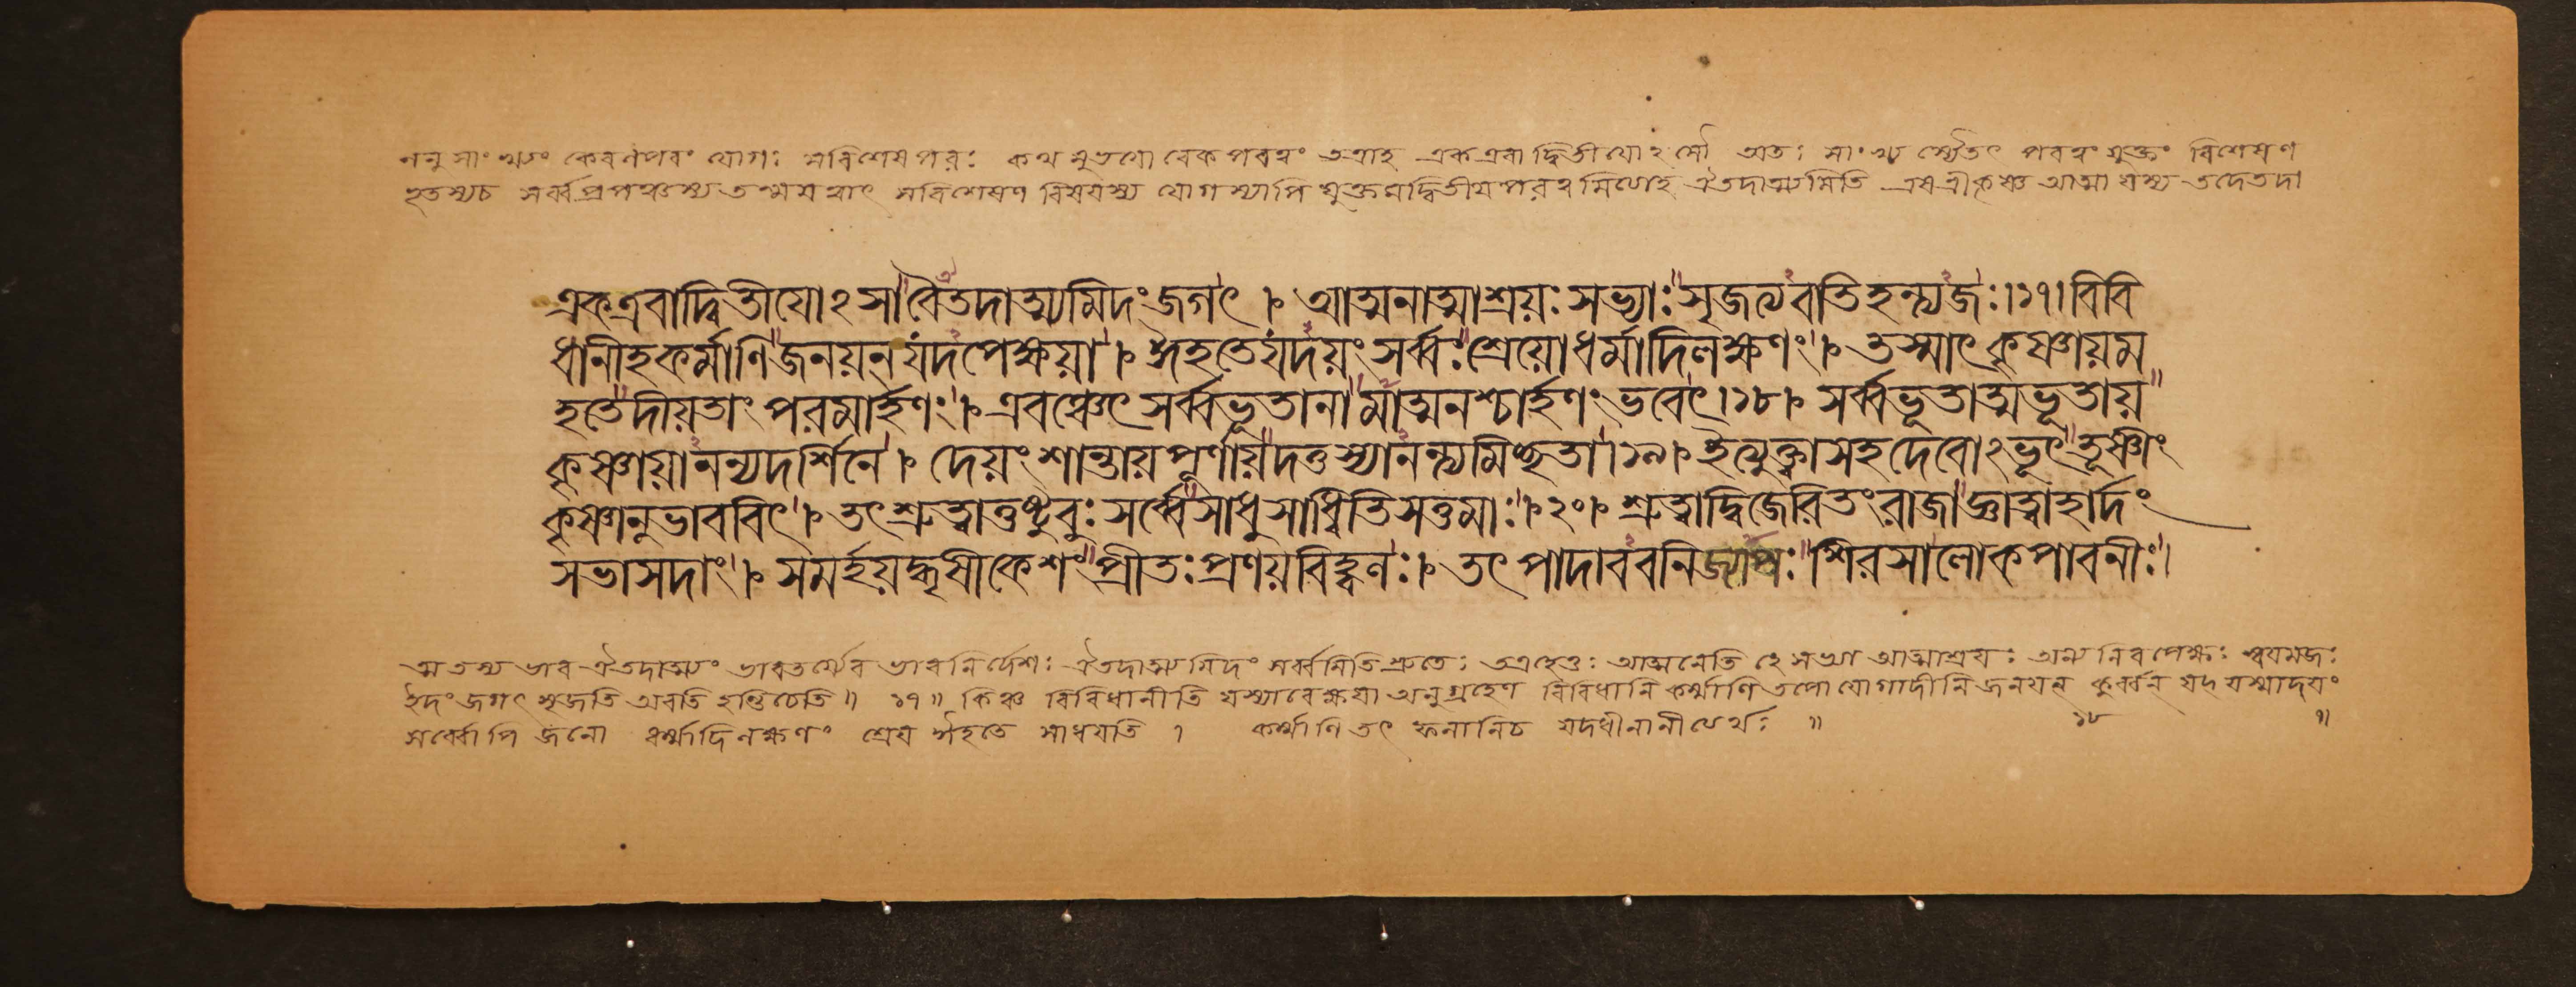 ননু সাংখ্যং কেবলপরং যোগঃ সবিশেষপরঃ কথমুভয়োরেকপরত্বং তত্রাহ এক এবাদ্বিতীয়োঽসৌ অতঃ সাংখ্যস্যৈতৎ পরত্বং যুক্তং বিশেষণ
হৃতস্যচ সর্ব্বপ্রপঞ্চস্য তন্ময়ত্বাৎ সবিশেষণ বিষয়স্য যোগস্যাপি যুক্তমদ্বিতীয়পরত্বমিত্যাহ ঐতদাত্ম্যমিতি এষ শ্রীকৃষ্ণ আত্মা যস্য তদেতদা
এক এবাদ্বিতীয়োঽসাবৈতদাত্ম্যমিদং জগৎ । আত্মনাত্মাশ্রয়ঃ সভ্যাঃ সৃজত্যবতি হন্ত্যজঃ ।১৭। বিবি
ধানীহকর্ম্মাণি জনয়ন্ যদপেক্ষয়া । ঈহতে যদয়ং সর্ব্বঃ শ্রেয়োধর্ম্মাদিলক্ষণং । তস্মাৎ কৃষ্ণায়ম
হতে দীয়তাং পরমার্হণং । এবঞ্চেৎ সর্ব্বভূতানামাত্মনশ্চার্হণং ভবেৎ ।১৮। সর্ব্বভূতাত্মভূতায়
কৃষ্ণায়ানন্যদর্শিনে । দেয়ং শান্তায় পূর্ণায় দত্তস্যানন্ত্যমিচ্ছতা ।১৯। ইত্যুক্ত্বা সহদেবোঽভূৎ তূষ্ণীং
কৃষ্ণানুভাববিৎ । তৎ শ্রুত্বা তুষ্টুবুঃ সর্ব্বে সাধু সাধ্বিতি সত্তমাঃ ।২০। শ্রুত্বা দ্বিজেরিতং রাজা জ্ঞাত্বা হার্দং
সভাসদাং । সমর্হয়দ্ধৃষীকেশং প্রীতঃ প্রণয়বিহ্বলঃ । তৎ পাদাববনিজ্যাপঃ শিরসা লোকপাবনীঃ।
ত্মতস্য ভাব ঐতদাত্ম্যং ভাবতর্থ্যেব ভাবনির্দেশঃ ঐতদাত্ম্যমিদং সর্ব্বমিতি শ্রুতেঃ তত্রহেতুঃ আত্মনেতি হে সভ্যা আত্মাশ্রয়ঃ অন্যনিরপেক্ষঃ স্বয়মজঃ
ইদং জগৎ সৃজতি অবতি হন্তিচেতি॥ ১৭॥ কিঞ্চ বিবিধানীতি যস্যাবেক্ষয়া অনুগ্রহেণ বিবিধানি কর্ম্মাণি তপোযোগাদীনি জনয়ন্ কুর্ব্বন্ যৎ যস্মাদয়ং
সর্ব্বোপি জনো ধর্ম্মাদিলক্ষণং শ্রেয় ঈহতে সাধয়তি । কর্ম্মাণি তৎ ফলানিচ যদধীনানীত্যর্থঃ ॥ ১৮ ॥